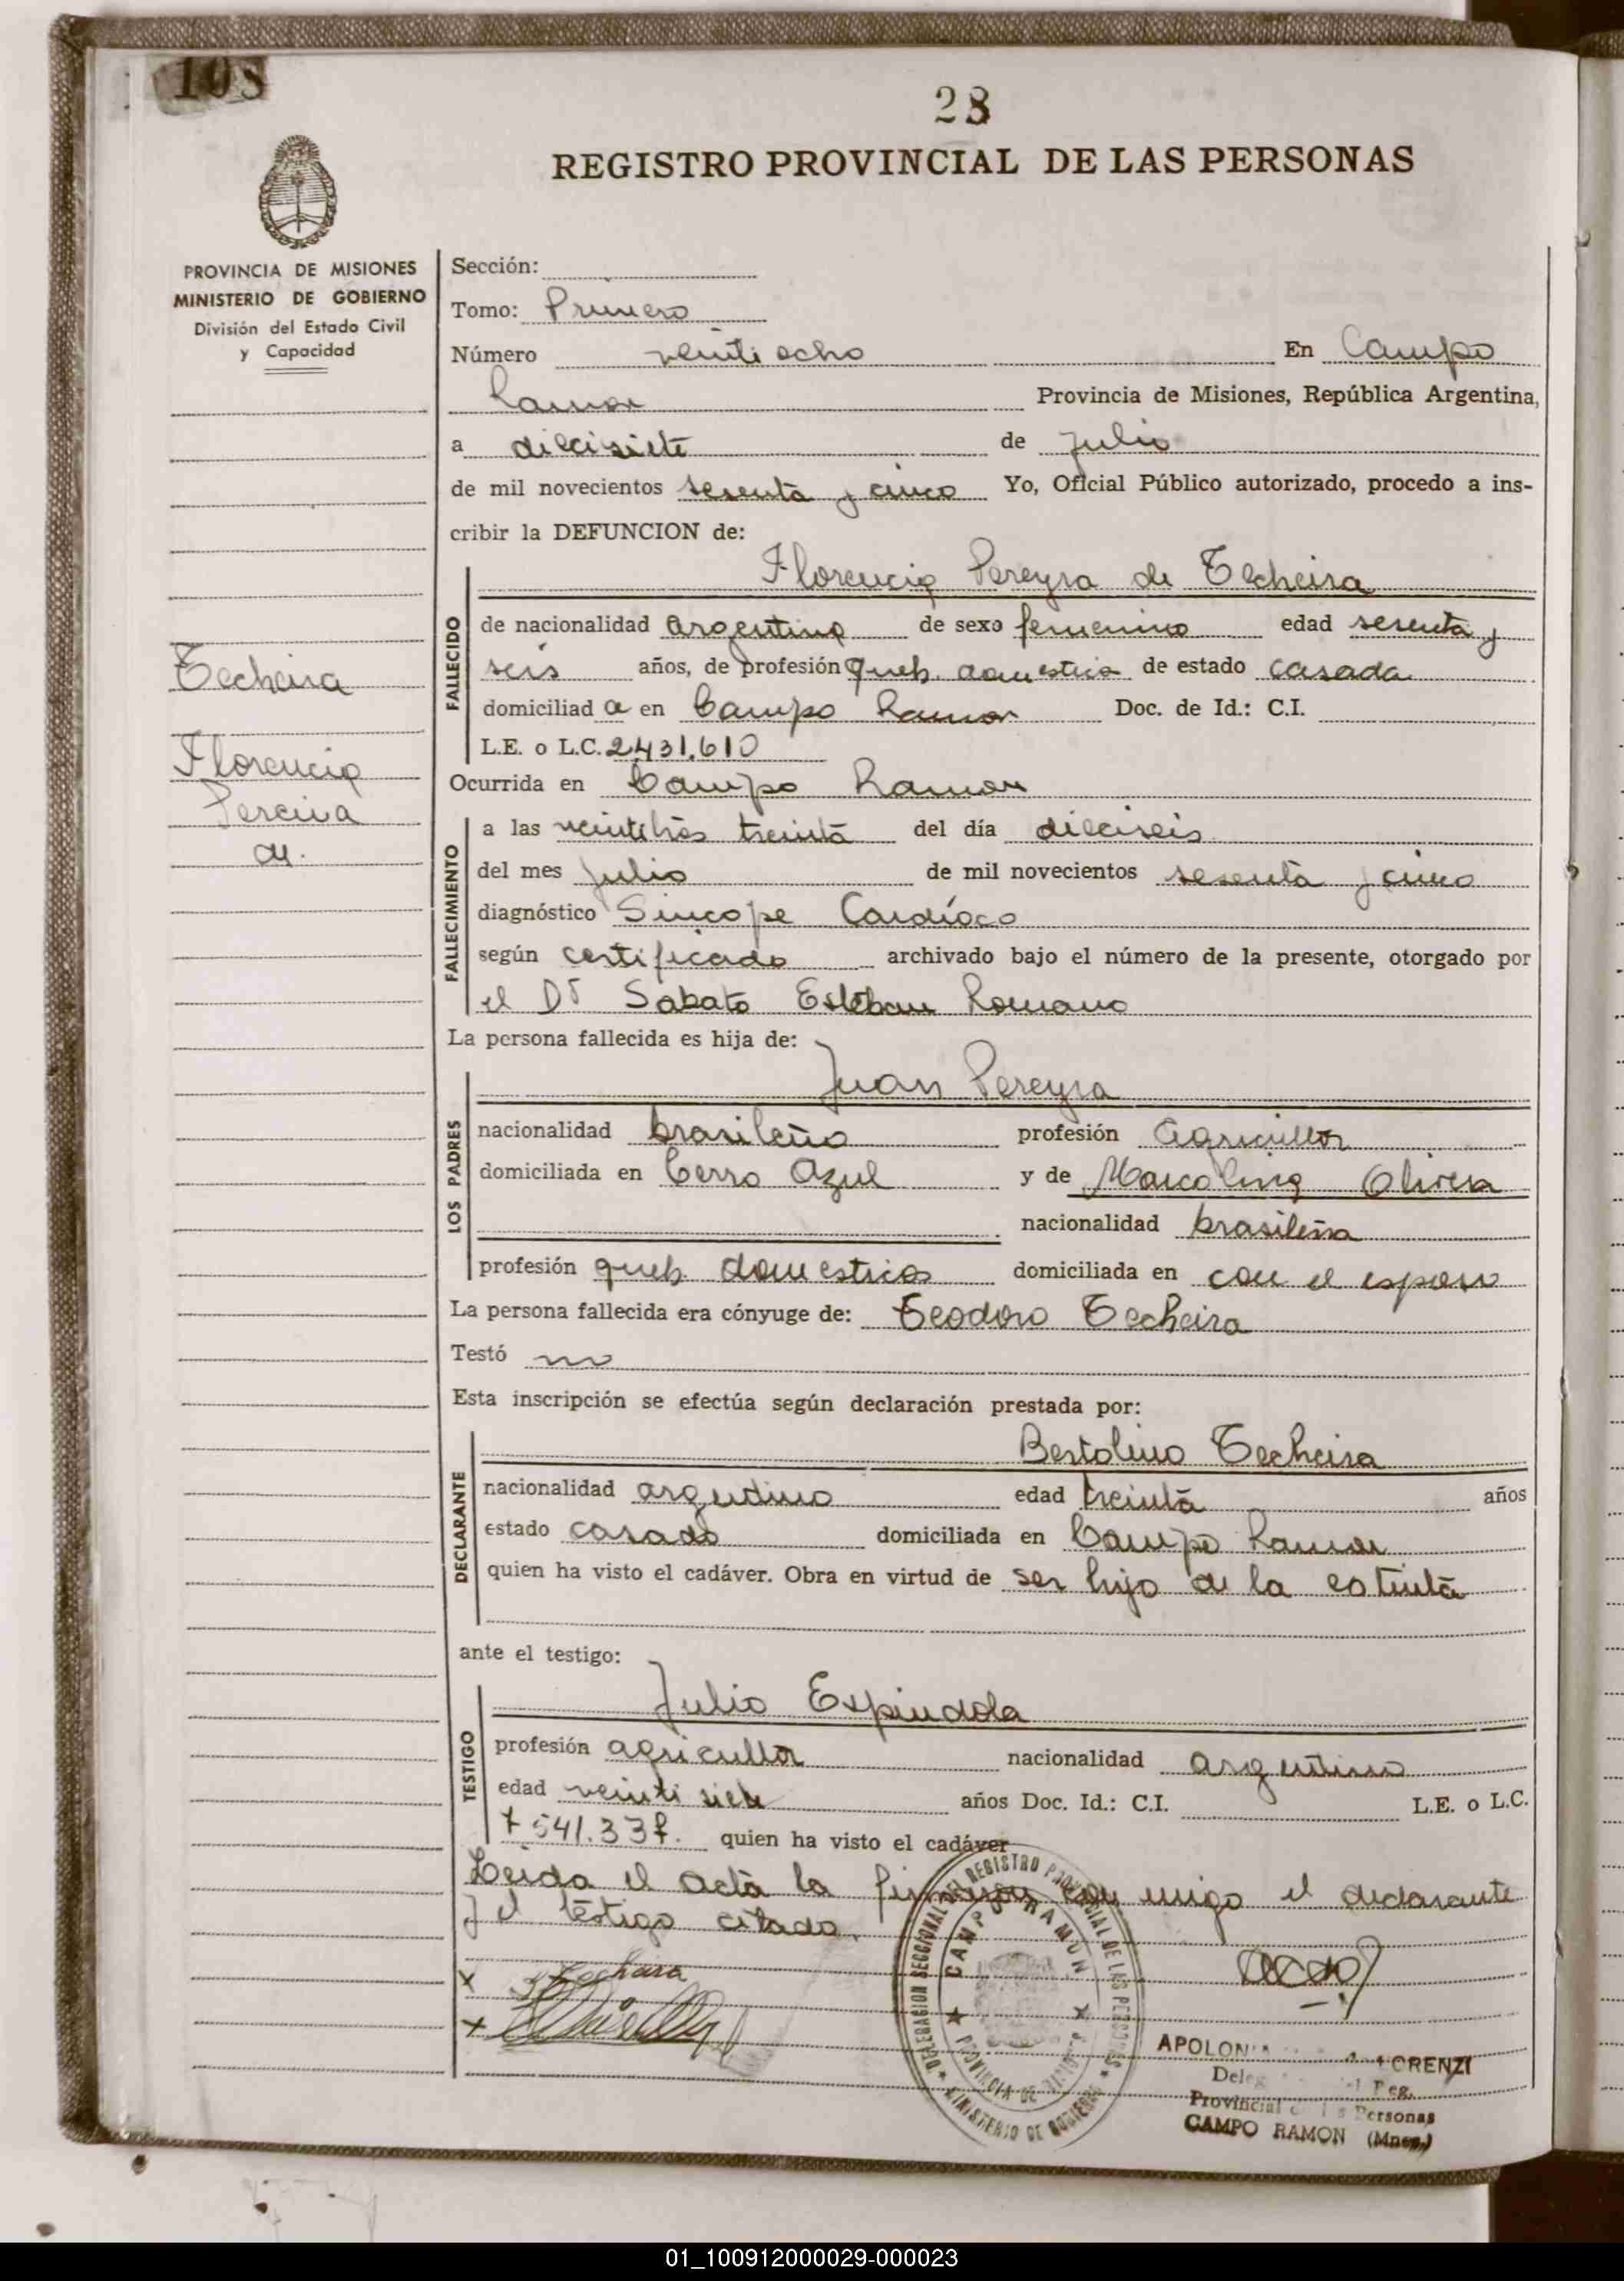 108
28
REGISTRO PROVINCIAL DE LAS PERSONAS
PROVINCIA DE MISIONES
MINISTERIO DE GOBIERNO
División del Estado Civil
y Capacidad
Techeira
Florencia
Pereira
de.
Sección:
Tomo: Primero
Número veinti ocho En Campo
Ramon Provincia de Misiones, República Argentina,
a diecisiete de julio
de mil novecientos sesenta y cinco Yo, Oficial Público autorizado, procedo a ins-
cribir la DEFUNCION de:
Florencia Pereyra de Techeira
FALLECIDO
de nacionalidad argentina de sexo femenino edad sesenta y
seis años, de profesión queh. domestico de estado casada
domiciliad a en Campo Ramon Doc. de Id.: C.I.
L.E. o L.C. 2431.610
Ocurrida en Campo Ramon
FALLECIMIENTO
a las veintitrés treinta del día dieciseis
del mes julio de mil novecientos sesenta y cinco
diagnóstico Sincope Cardíaco
según certificado archivado bajo el número de la presente, otorgado por
el Dr Sabato Esteban Romano
La persona fallecida es hija de:
Juan Pereyra
LOS PADRES
nacionalidad brasileño profesión agricultor
domiciliada en Cerro Azul y de Marcolina Olivera
nacionalidad brasileña
profesión queh domesticos domiciliada en con el esposo
La persona fallecida era cónyuge de: Teodoro Techeira
Testó no
Esta inscripción se efectúa según declaración prestada por:
Bertolino Techeira
DECLARANTE
nacionalidad argentino edad treinta años
estado casado domiciliada en Campo Ramon
quien ha visto el cadáver. Obra en virtud de ser hijo de la extinta
ante el testigo:
Julio Espindola
TESTIGO
profesión agricultor nacionalidad argentino
edad veinti siete años Doc. Id.: C.I. L.E. o L.C.
7541.337. quien ha visto el cadáver
Leida el acta la firmaron con migo el declarante
y el testigo citado.
x Techeira
x
DELEGACION SECCIONAL DEL REGISTRO PROVINCIAL DE LAS PERSONAS
CAMPO RAMON
PROVINCIA DE MISIONES
MINISTERIO DE GOBIERNO
APOLON LORENZI
Deleg Reg.
Provincial Personas
CAMPO RAMON (Mnes.)
01_100912000029-000023